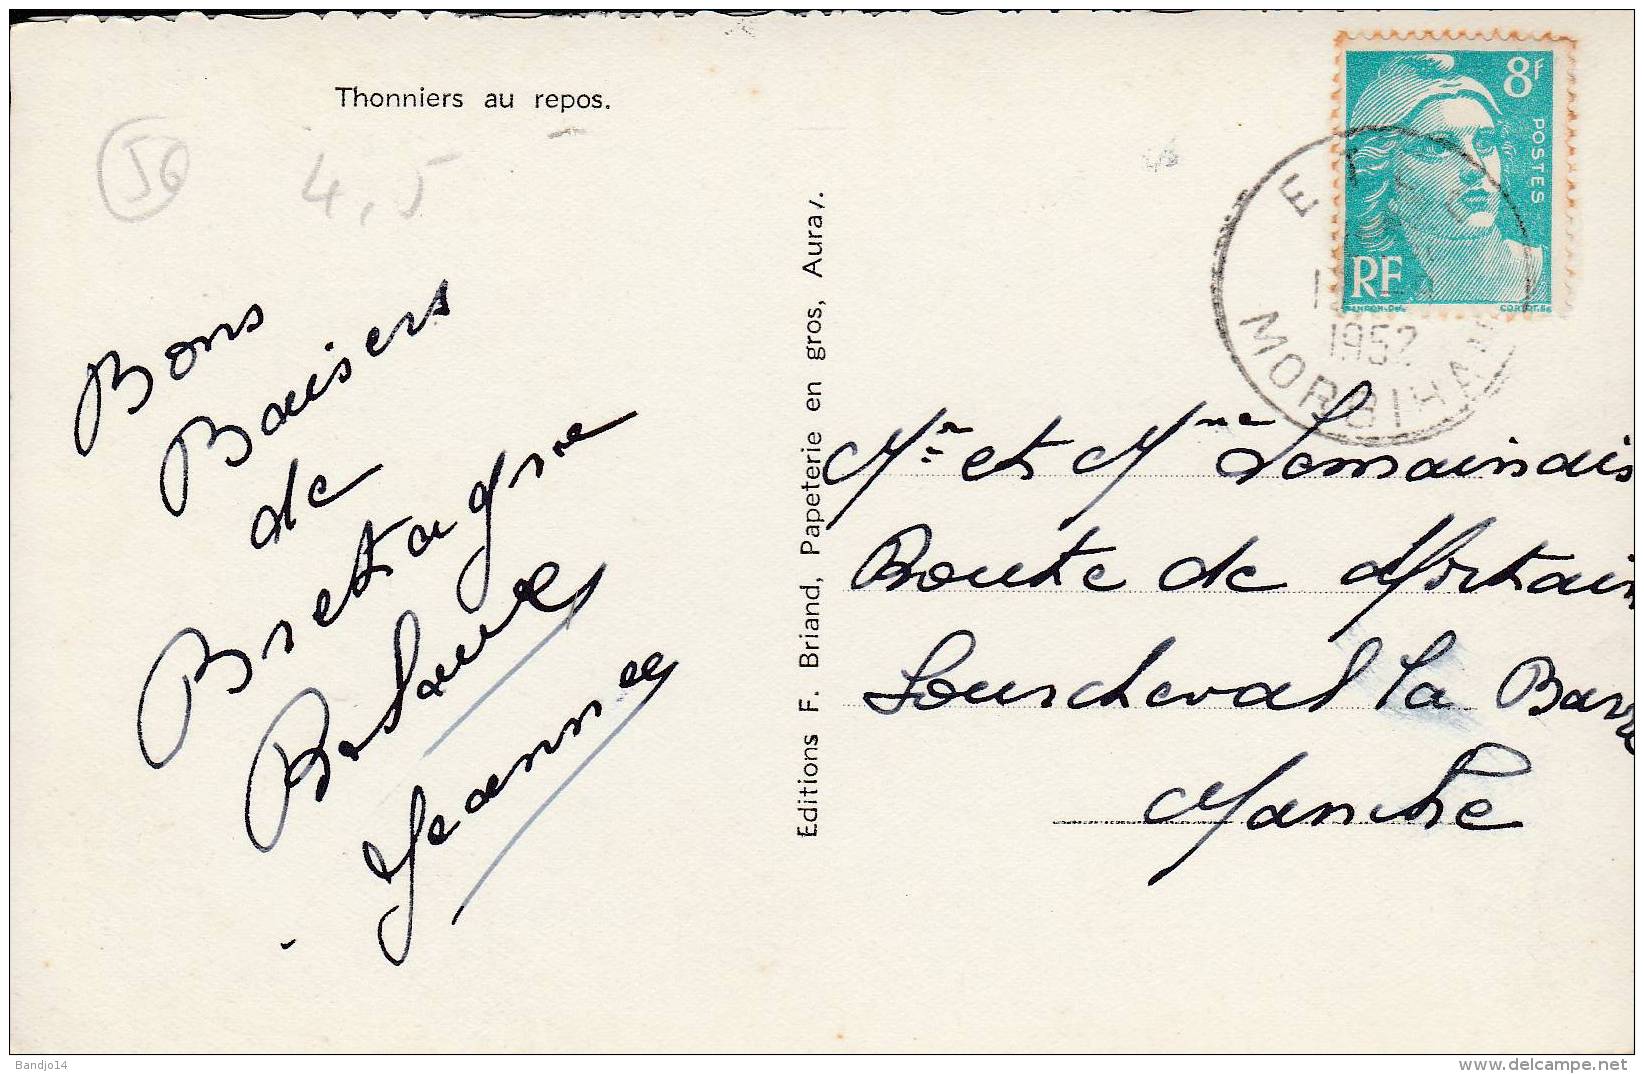 Thonniers au repos.
56
4,5
Bons
Baisers
de
Bretagne
Jeanne
Editions F. Briand, Papeterie en gros, Auray.
8F
POSTES
RF
ETEL
1952
MORBIHAN
Mr et Mme Lemainais
Route de Mortain
Sourdeval la Barre
Manche
Bandjo14
www.delcampe.net